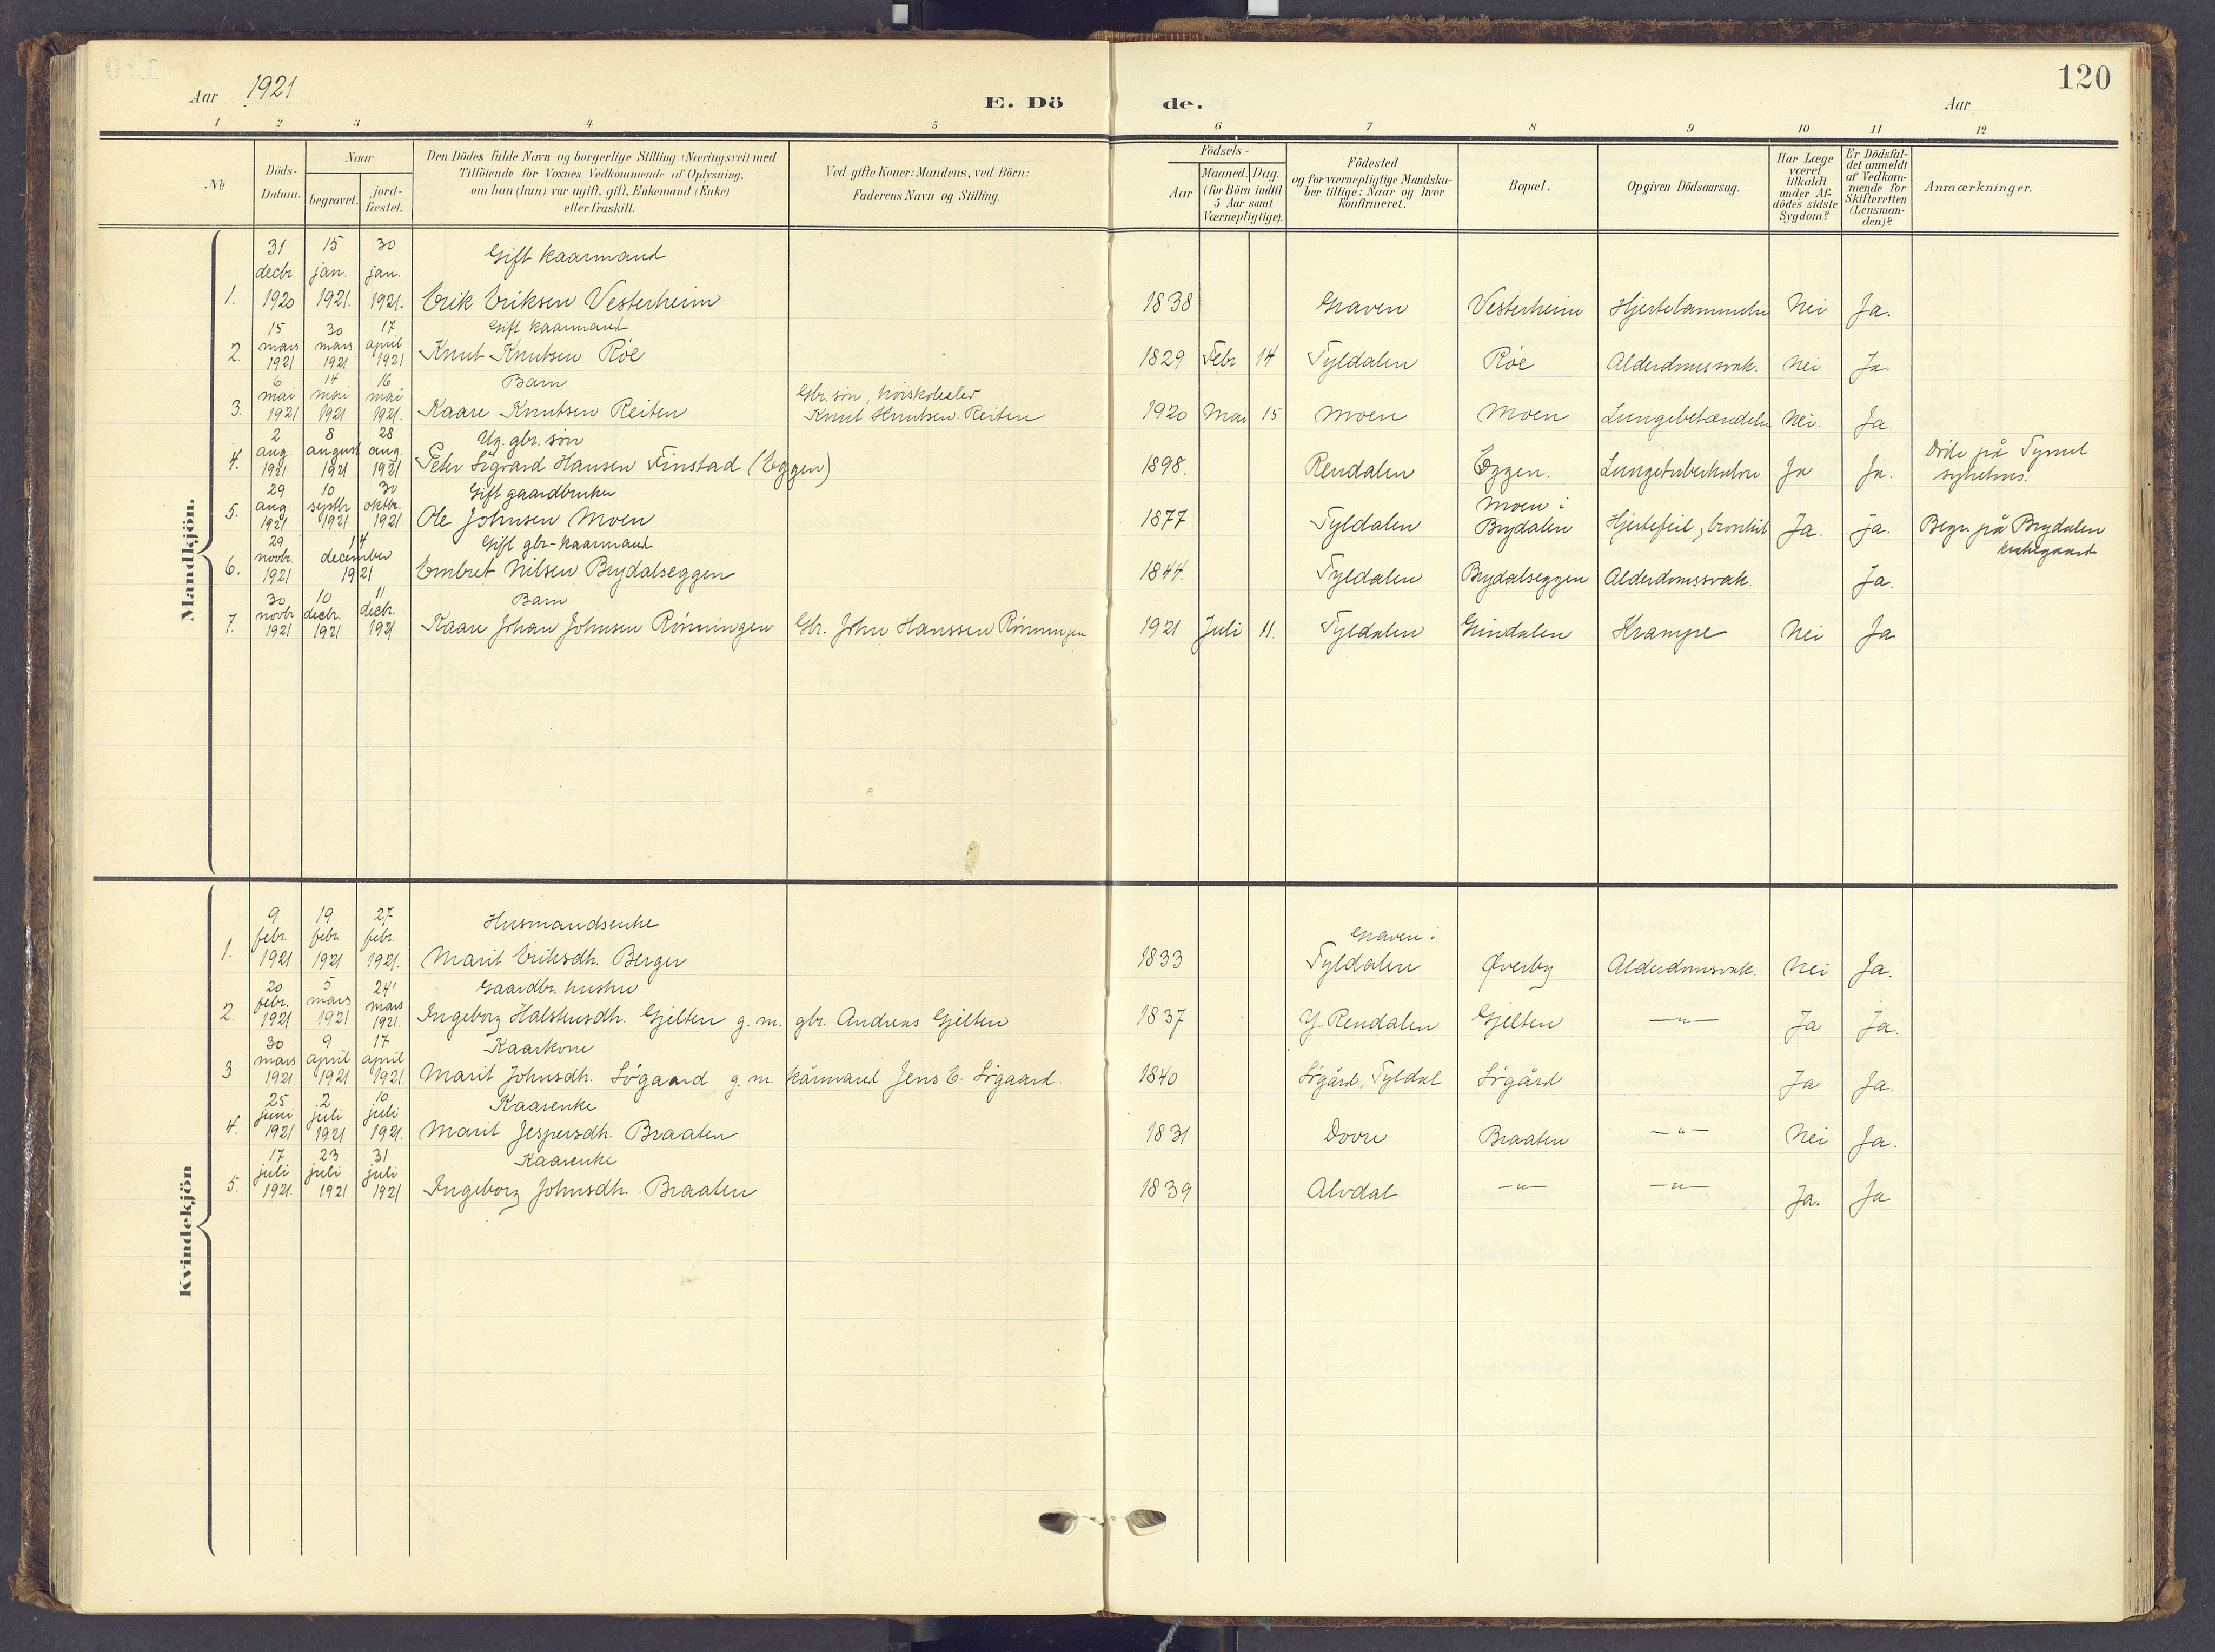 120
Aar 1921
E. Dö de.
Aar
1 2 3 4 5 6 7 8 9 10 11 12
No
Döds-Datum.
Naar
begravet.
jord-fæstet.
Den Dödes fulde Navn og borgerlige Stilling (Næringsvei) med
Tilföiende for Voxnes Vedkommende af Oplysning,
om han (hun) var ugift, gift, Enkemand (Enke)
eller fraskilt.
Ved gifte Koner: Mandens, ved Börn:
Faderens Navn og Stilling.
Födsels-
Aar
Maaned. Dag.
(for Börn indtil
5 Aar samt
Værnepligtige).
Födested
og for værnepligtige Mandska-
ber tillige: Naar og hvor
konfirmeret.
Bopæl.
Opgiven Dödsaarsag.
Har Læge
været
tilkaldt
under Af-
dödes sidste
Sygdom?
Er Dödsfal-
det anmeldt
af Vedkom-
mende for
Skifteretten
(Lensman-
den)?
Anmærkninger.
Mandkjön.
31 15 30 Gift kaarmand
decbr. jan. jan.
1. 1920 1921. 1921. Erik Eriksen Vesterheim 1838 Graven Vesterheim Hjertelammelse Nei Ja.
15 30 17 Gift kaarmand
mars mars april
2. 1921 1921 1921 Knut Knutsen Röe 1829 Febr. 14 Tyldalen Röe Alderdomssvak. Nei Ja.
6 14 16 Barn Gbr. søn,
mai mai mai
3. 1921 1921 1921. Kaare Knutsen Reiten Knut Knutsen Reiten 1920 Mai 15 Moen Moen Lungebetændelse Nei. Ja.
2 8 28 Ug. gbr. søn
aug. august aug. Døde på Tynset
4. 1921 1921 1921 Peder Sigvard Hansen Finstad (Eggen) 1898. Rendalen Eggen. Lungetuberkulose Ja Ja. sykehus.
29 10 30 Gift gaardbruker
aug. septbr. oktbr. Moen i
5. 1921 1921 1921. Ole Johnsen Moen 1877 Tyldalen Brydalen Hjertefeil, bronkit Ja. Ja. Begr. på Brydalen
kirkegaard
29 14 Gift gbr.-kaarmand
novbr. december
6. 1921 1921 Embret Nilsen Brydalseggen 1844. Tyldalen Brydalseggen Alderdomssvak. Ja.
30 10 11 Barn
novbr. decbr. decbr.
7. 1921 1921 1921 Kaare Johan Johnsen Rönningen Gbr. John Hanssen Rönningen 1921 Juli 11. Tyldalen Grindalen Krampe Nei Ja
Kvindekjön
9 19 27 Husmandsenke
febr. febr. febr. Graven i
1. 1921 1921 1921. Marit Eriksdh. Berger 1833 Tyldalen Øverby Alderdomssvak. Nei Ja.
20 5 24 Gaardbr. hustru
febr. mars mars
2. 1921 1921 1921. Ingeborg Halstensdh. Gjelten g. m. gbr. Andreas Gjelten 1837 Y. Rendalen Gjelten —"— Ja Ja.
30 9 17 Kaarkone
mars april april
3 1921 1921 1921. Marit Johnsdh. Sögaard g. m. kårmand Jens E. Sögaard. 1840 Sögård, Tyldal Sögård Ja Ja.
25 2 10 Kaarenke
juni juli juli
4. 1921 1921 1921. Marit Jespersdh. Braaten 1831 Dovre Braaten —"— Nei Ja.
17 23 31 Kaarenke
juli juli juli
5. 1921. 1921 1921 Ingeborg Johnsdh. Braaten 1839 Alvdal —"— —"— Ja. Ja